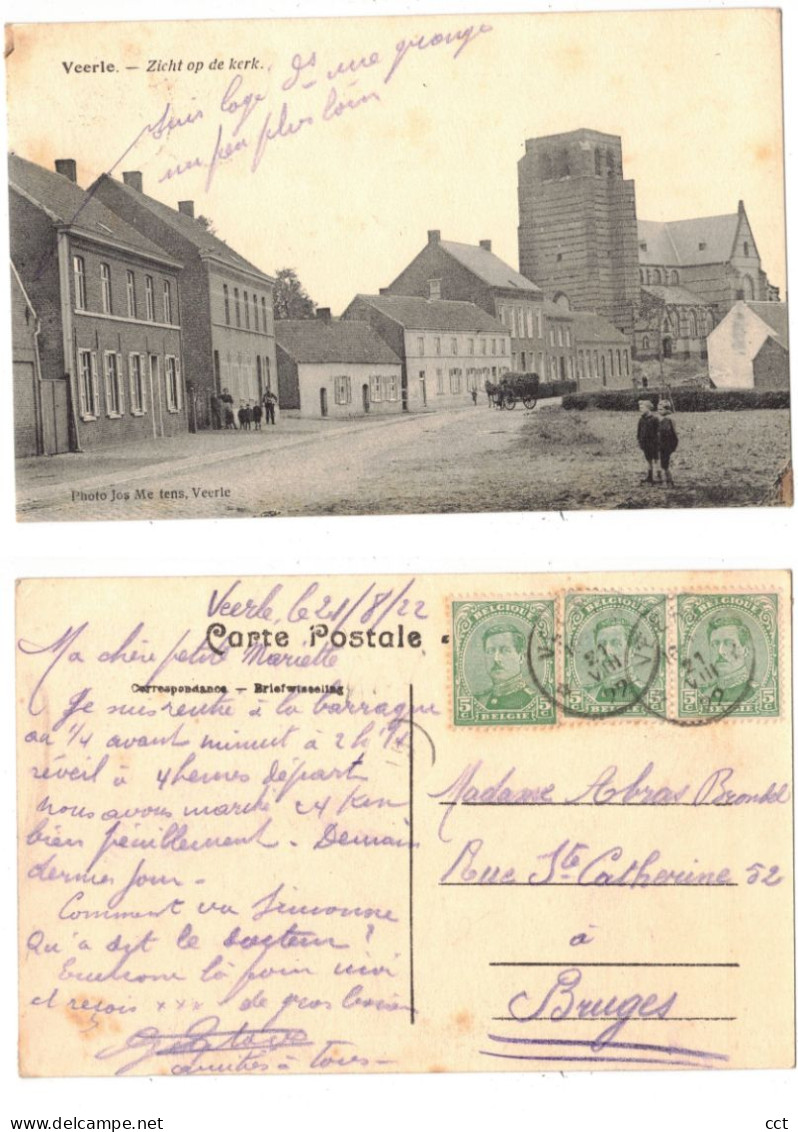 Veerle. — Zicht op de kerk.
Suis logé ds une grange
un peu plus loin
Photo Jos Me tens, Veerle
Veerle, le 21/8/22
Carte Postale
Ma chère petite Mariette
Correspondance — Briefwisseling
Je suis rentré à la barraque
au 1/4 avant minuit à 2h 1/4
réveil à 4 heures départ
nous avons marché 24 Km
bien péniblement. Demain
dernier jour.
Comment va Simonne
Qu'a dit le docteur?
et reçois xxx de gros
amitiés à tous
BELGIQUE BELGIQUE BELGIQUE
5c BELGIE 5c 5c BELGIE 5c 5c BELGIE 5c
21 VIII 22
21 VIII 22
Madame Abras Brondel
Rue Ste Catherine 52
à
Bruges
delcampe.net
cct